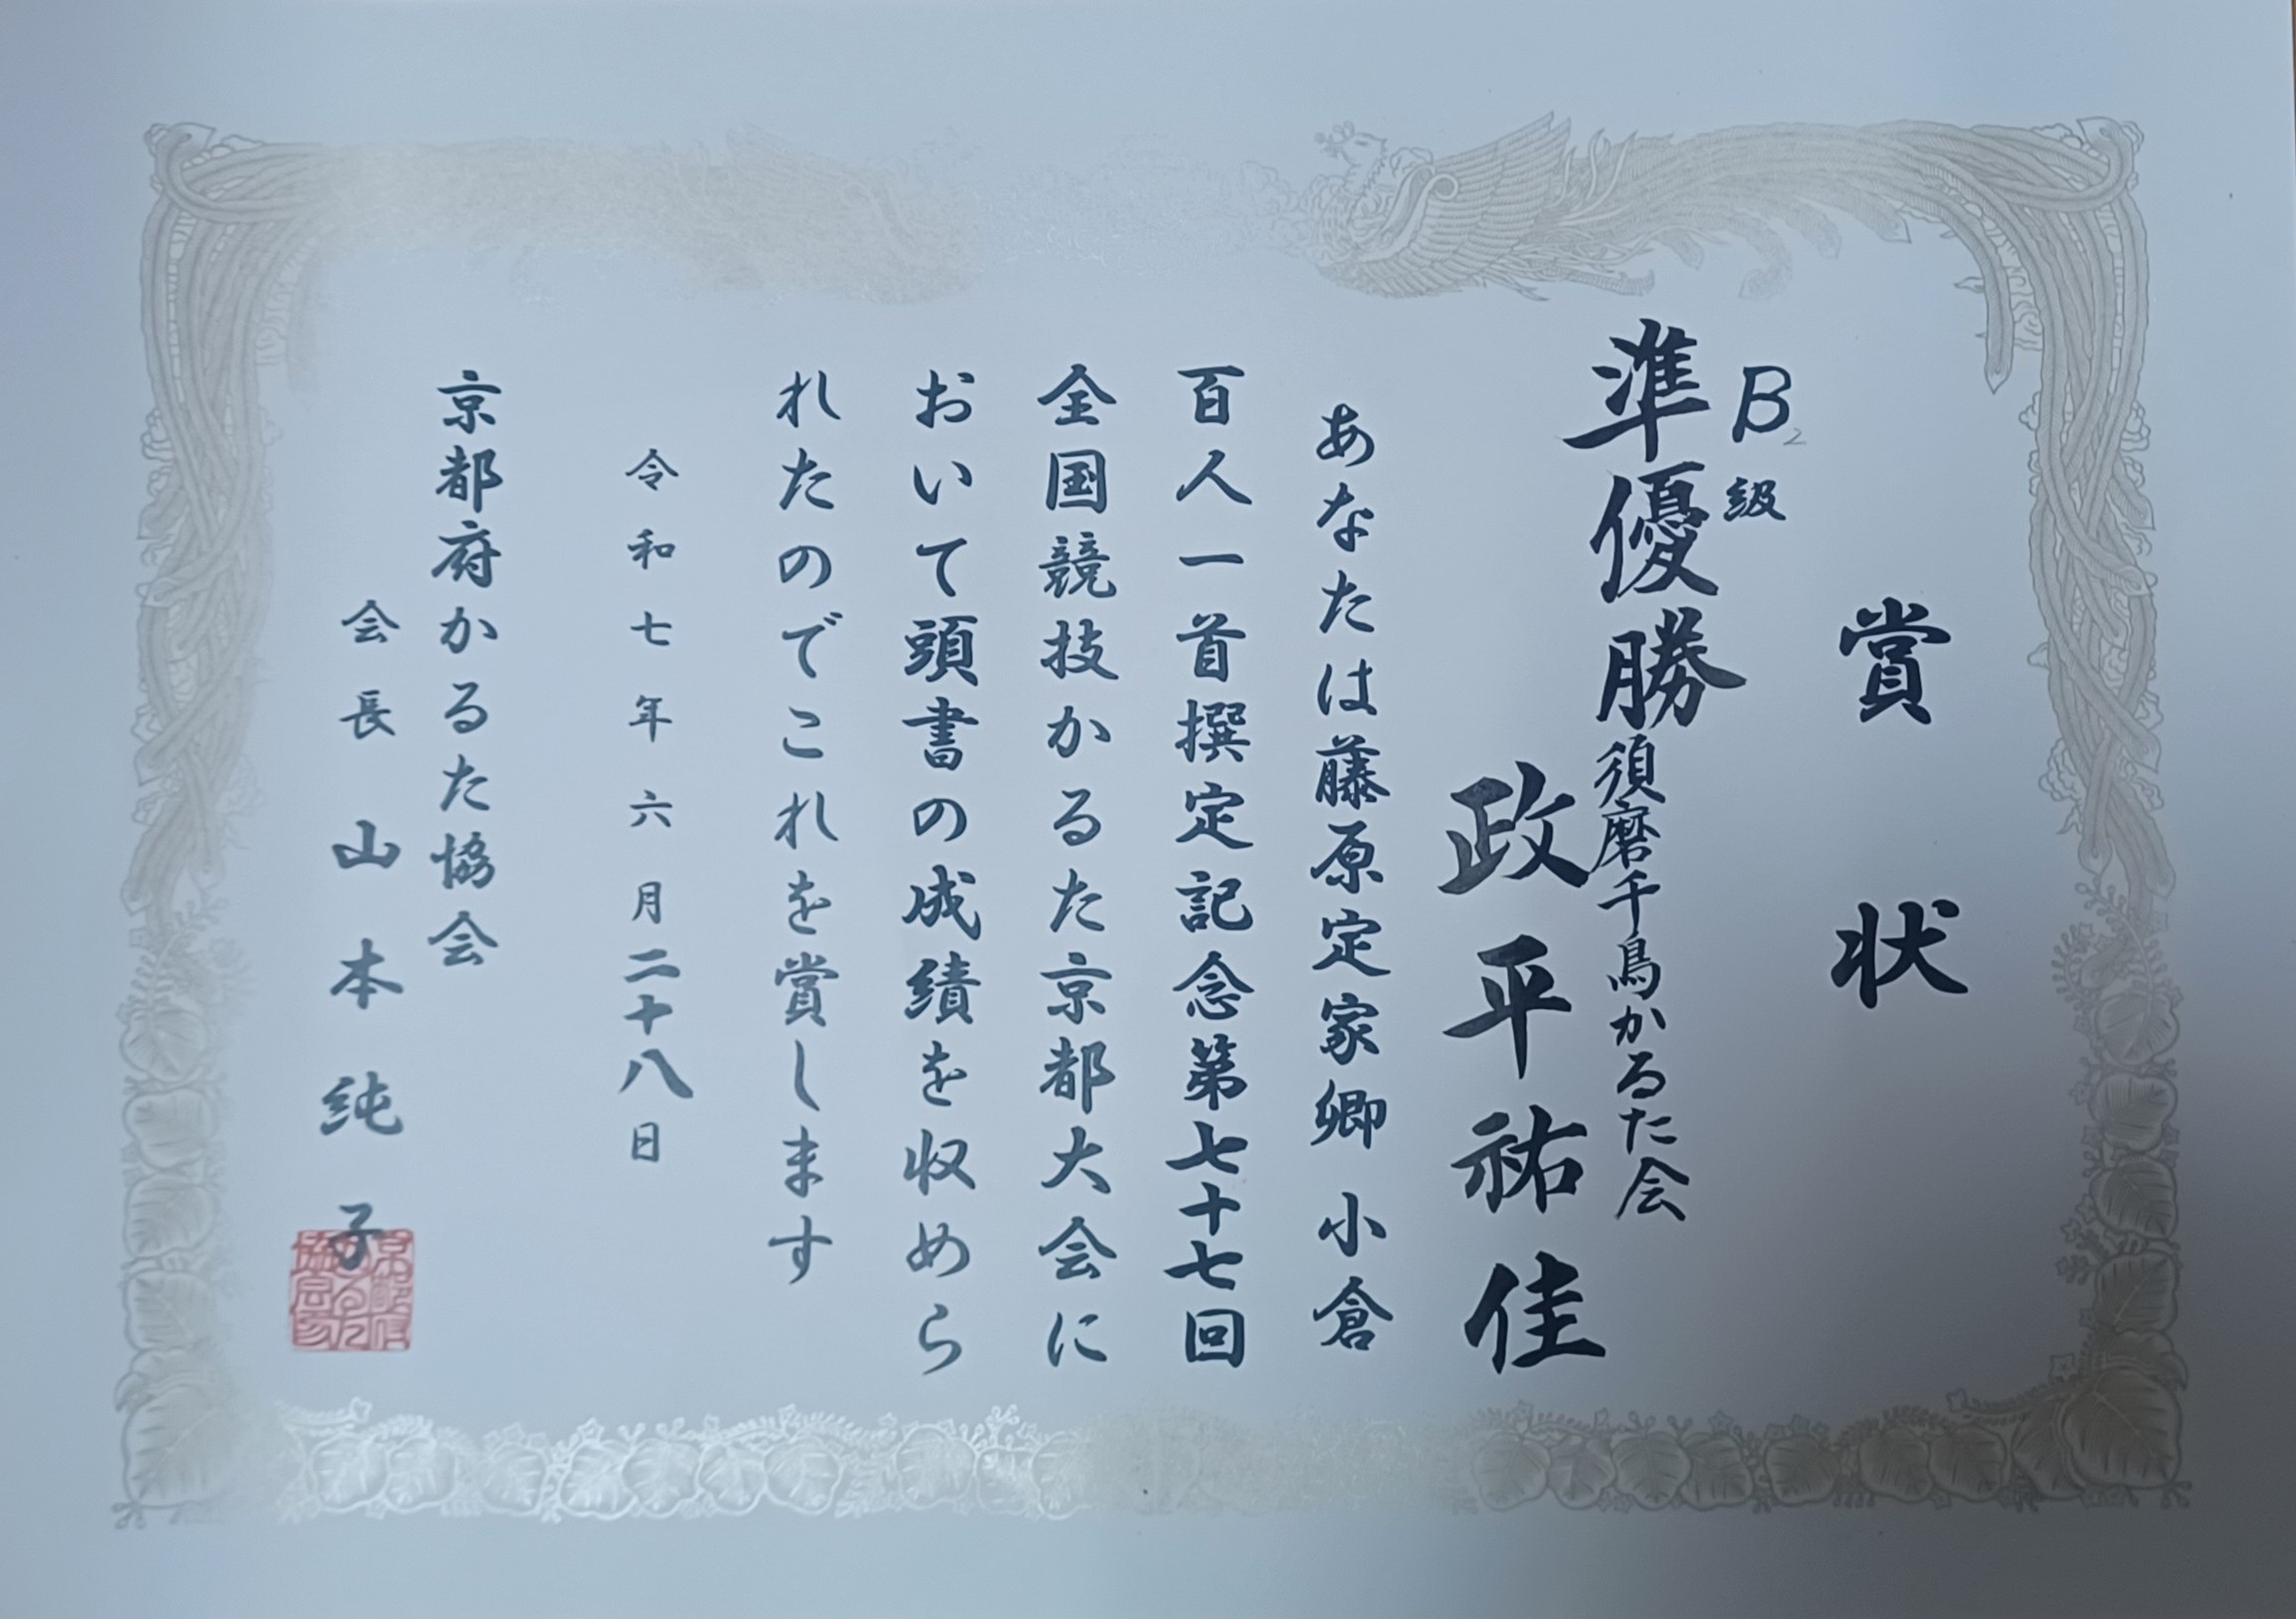 賞状
B2級
準優勝
須磨千鳥かるた会
政平祐佳
あなたは藤原定家卿 小倉
百人一首撰定記念第七十七回
全国競技かるた京都大会に
おいて頭書の成績を収めら
れたのでこれを賞します
令和七年六月二十八日
京都府かるた協会
会長 山本純子